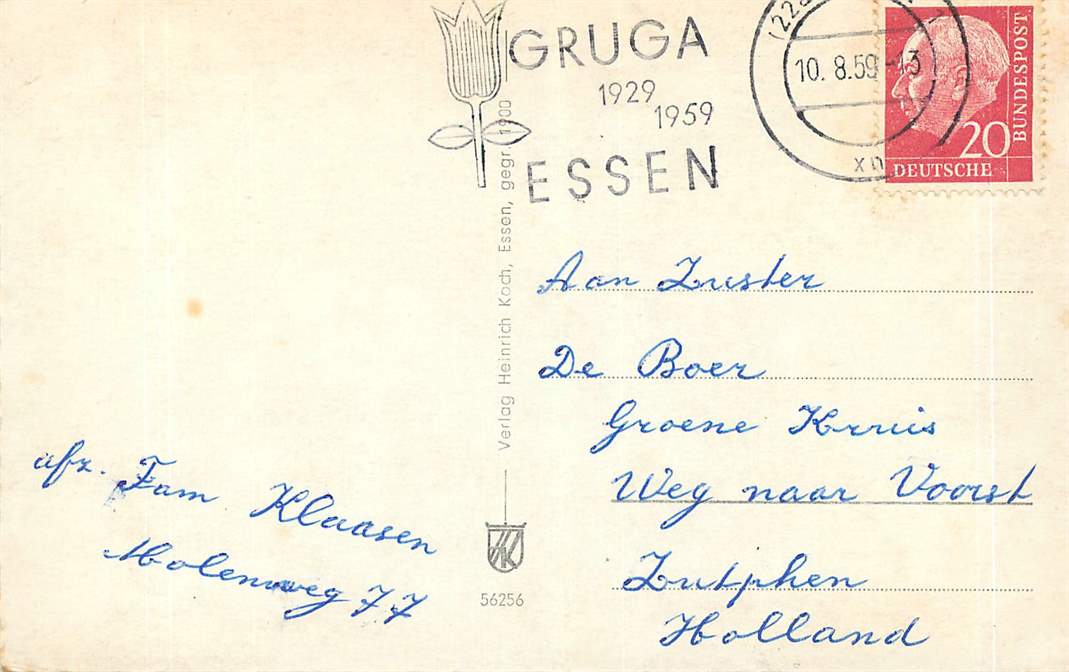 GRUGA
1929
1959
ESSEN
10. 8.59-13
20
BUNDESPOST
DEUTSCHE
Verlag Heinrich Koch, Essen, gegr. 1900
HK
56256
Aan Zuster
De Boer
Groene Kruis
Weg naar Voorst
Zutphen
Holland
afz. Fam Klaasen
Molenweg 77